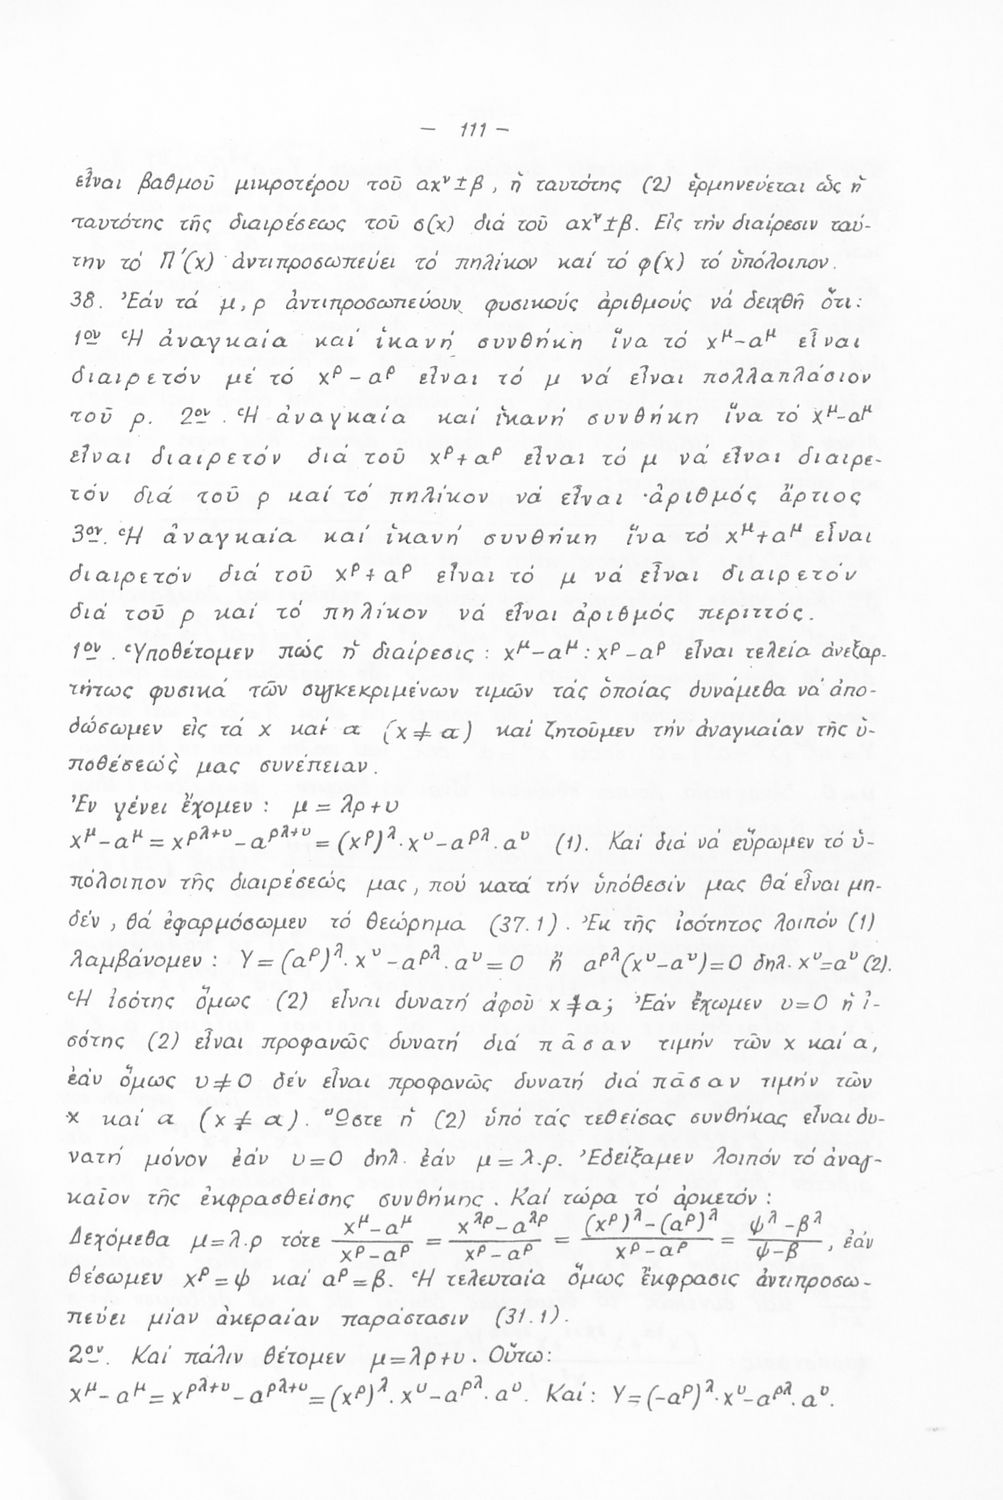 — 111 —
εἶναι βαθμοῦ μικροτέρου τοῦ αxᵛ±β, ἡ ταυτότης (2) ἑρμηνεύεται ὡς ἡ
ταυτότης τῆς διαιρέσεως τοῦ σ(x) διά τοῦ αxᵛ±β. Εἰς τήν διαίρεσιν ταύ-
την τό Π΄(x) ἀντιπροσωπεύει τό πηλίκον καί τό φ(x) τό ὑπόλοιπον.
38. Ἐάν τά μ,ρ ἀντιπροσωπεύουν φυσικούς ἀριθμούς νά δειχθῆ ὅτι:
1ον Ἡ ἀναγκαία καί ἱκανή συνθήκη ἵνα τό x^μ-α^μ εἶναι
διαιρετόν μέ τό x^ρ-α^ρ εἶναι τό μ νά εἶναι πολλαπλάσιον
τοῦ ρ. 2ον. Ἡ ἀναγκαία καί ἱκανή συνθήκη ἵνα τό x^μ-α^μ
εἶναι διαιρετόν διά τοῦ x^ρ+α^ρ εἶναι τό μ νά εἶναι διαιρε-
τόν διά τοῦ ρ καί τό πηλίκον νά εἶναι ἀριθμός ἄρτιος
3ον. Ἡ ἀναγκαία καί ἱκανή συνθήκη ἵνα τό x^μ+α^μ εἶναι
διαιρετόν διά τοῦ x^ρ+α^ρ εἶναι τό μ νά εἶναι διαιρετόν
διά τοῦ ρ καί τό πηλίκον νά εἶναι ἀριθμός περιττός.
1ον. Ὑποθέτομεν πώς ἡ διαίρεσις: x^μ-α^μ : x^ρ-α^ρ εἶναι τελεία ἀνεξαρ-
τήτως φυσικά τῶν συγκεκριμένων τιμῶν τάς ὁποίας δυνάμεθα νά ἀπο-
δώσωμεν εἰς τά x καί α (x≠α) καί ζητοῦμεν τήν ἀναγκαίαν τῆς ὑ-
ποθέσεώς μας συνέπειαν.
Ἐν γένει ἔχομεν: μ=λρ+υ
x^μ-α^μ = x^{ρλ+υ}-α^{ρλ+υ} = (x^ρ)^λ.x^υ-α^{ρλ}.α^υ (1). Καί διά νά εὕρωμεν τό ὑ-
πόλοιπον τῆς διαιρέσεώς μας, πού κατά τήν ὑπόθεσίν μας θά εἶναι μη-
δέν, θά ἐφαρμόσωμεν τό θεώρημα (37.1). Ἐκ τῆς ἰσότητος λοιπόν (1)
λαμβάνομεν: Υ=(α^ρ)^λ.x^υ-α^{ρλ}.α^υ=0 ἤ α^{ρλ}(x^υ-α^υ)=0 δηλ. x^υ=α^υ (2).
Ἡ ἰσότης ὅμως (2) εἶναι δυνατή ἀφοῦ x≠α; Ἐάν ἔχωμεν υ=0 ἡ ἰ-
σότης (2) εἶναι προφανῶς δυνατή διά πᾶσαν τιμήν τῶν x καί α,
ἐάν ὅμως υ≠0 δέν εἶναι προφανῶς δυνατή διά πᾶσαν τιμήν τῶν
x καί α (x≠α). Ὥστε ἡ (2) ὑπό τάς τεθείσας συνθήκας εἶναι δυ-
νατή μόνον ἐάν υ=0 δηλ. ἐάν μ=λ.ρ. Ἐδείξαμεν λοιπόν τό ἀναγ-
καῖον τῆς ἐκφρασθείσης συνθήκης. Καί τώρα τό ἀρκετόν:
Δεχόμεθα μ=λ.ρ τότε (x^μ-α^μ)/(x^ρ-α^ρ) = (x^{λρ}-α^{λρ})/(x^ρ-α^ρ) = ((x^ρ)^λ-(α^ρ)^λ)/(x^ρ-α^ρ) = (ψ^λ-β^λ)/(ψ-β), ἐάν
θέσωμεν x^ρ=ψ καί α^ρ=β. Ἡ τελευταία ὅμως ἔκφρασις ἀντιπροσω-
πεύει μίαν ἀκεραίαν παράστασιν (31.1).
2ον. Καί πάλιν θέτομεν μ=λρ+υ. Οὕτω:
x^μ-α^μ = x^{ρλ+υ}-α^{ρλ+υ} = (x^ρ)^λ.x^υ-α^{ρλ}.α^υ. Καί: Υ=(-α^ρ)^λ.x^υ-α^{ρλ}.α^υ.